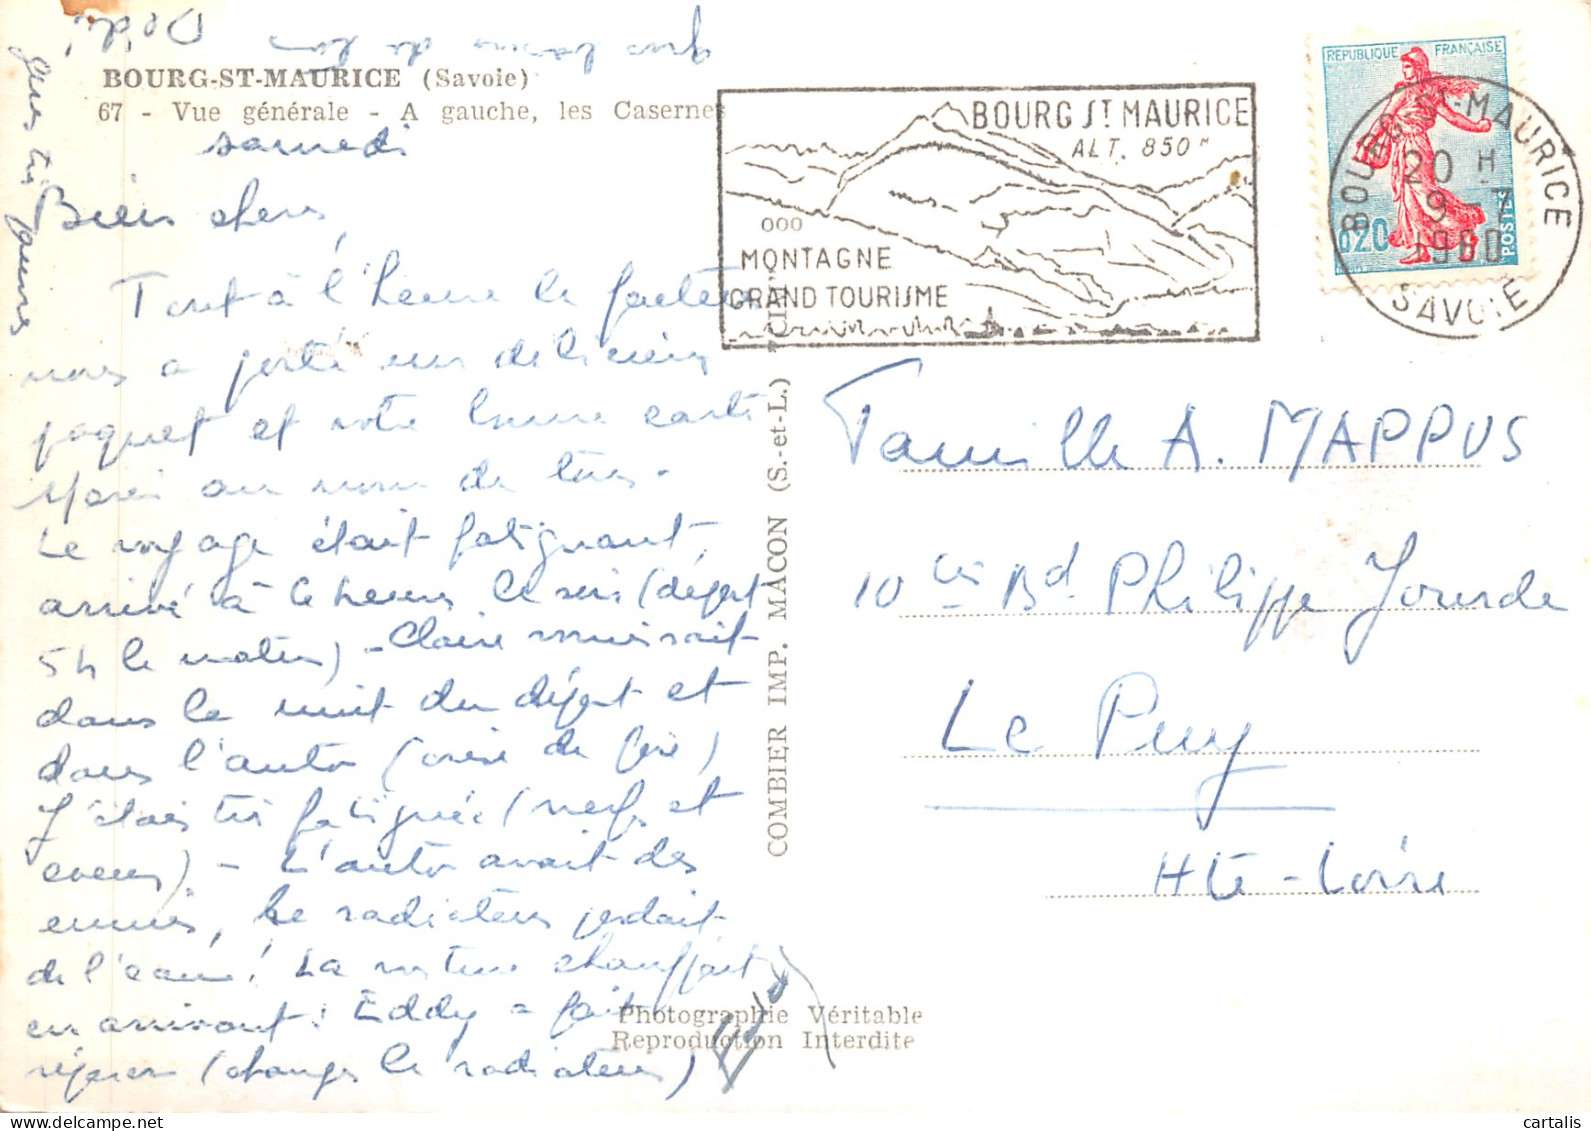 BOURG-ST-MAURICE (Savoie)
67 - Vue générale - A gauche, les Casernes
samedi
Bien chers,
Tout à l'heure le facteur
nous a porté un délicieux
paquet et votre bonne carte
Merci au nom de tous.
Le voyage était fatigant,
arrivé à 6 heures le soir (départ
5 h le matin) - Claire vomissait
dans la nuit du départ et
dans l'auto (crise de foie)
J'étais très fatiguée (nerfs et
coeur). - L'auto avait des
ennuis, le radiateur perdait
de l'eau! La voiture chauffait
en arrivant! Eddy a fait
réparer (changer le radiateur)
Gros baisers de
Dédé
Eddy
COMBIER IMP. MACON (S.-et-L.) "CIM"
Photographie Véritable
Reproduction Interdite
BOURG ST MAURICE
ALT. 850 M
MONTAGNE
GRAND TOURISME
REPUBLIQUE FRANÇAISE
0,20
POSTES
BOURG-ST-MAURICE
20 H
9 - 7
1960
SAVOIE
Famille A. MAPPUS
10 bis Bd Philippe Jourde
Le Puy
Hte-Loire